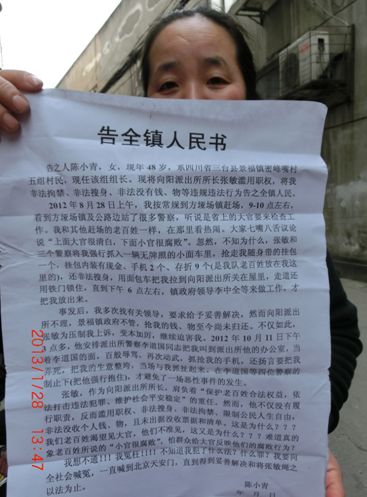 告全镇人民书
告之人陈小青，女，现年48岁，系四川省三台县景福镇密蜂嘴村
五组村民，现任该组组长。现将向阳派出所所长张敏滥用职权，将我
非法拘禁、非法搜身、非法没有钱、物等违规违法行为告之全镇人民。
2012年8月28日上午，我按常规到方垭场镇赶场，9-10点左右，
看到方垭场镇及公路边站了很多警察，听说是省上的大官要来检查工
作。我和其他赶场的老百姓一样，在那里看热闹。大家七嘴八舌议论
说"上面大官很清白，下面小官很腐败"。忽然，不知为什么，张敏和
三个警察将我强行抓入一辆无牌照的小面车里，抢走我随身带的挂包
一个，挂包内装有现金、手机2个、存折9个(是我队老百姓放在我这
里的)，还非法搜身，用面包车把我拉到向阳派出所关在屋里，走道还
用铁门锁住，直到下午6点左右，镇政府领导李中全等来做工作，才
把我放出来。
事发后，我多次找有关领导，要求给予妥善解决，然而向阳派出
所不理，景福镇政府不管，抢我的钱、物至今尚未归还。不仅如此，
张敏为压制我上诉、受本加厉，继续迫害我。2012年10月11日下午
点多，他安排派出所李道国同志把我叫到派出所他的办公室，当
着李道国的面，百般辱骂，再次动武，抓抢我的手机，还扬言要把我
弄死，把我的生意整垮，当场与我抓扯起来。在李道国等四位警察的
制止下(把他强行抱住)，才避免了一场恶性事件的发生。
张敏，作为向阳派出所所长，肩负着"保护老百姓合法权益，依
法打击违法犯罪、维护社会平安稳定"的重任。然而，他不仅没有履
行职责，反而滥用职权、非法搜身、非法拘禁，限制公民人生自由，
非法没收个人钱、物，且未出据没收票据和清单，这是为什么？？？
我们老百姓渴望见大官，他们不准见，这又是为什么？？？难道真的
象老百姓所说的"小官很腐败"，怕群众给大官反映他们的腐败行为？
我想不通！！！我冤枉！！！不知道我犯了什么法？什么罪？我要向
全社会喊冤，一直喊到北京天安门，直到得到妥善解决和将张敏绳之
以法为止。
陈小青
年 月 日
2013/1/28 13:47